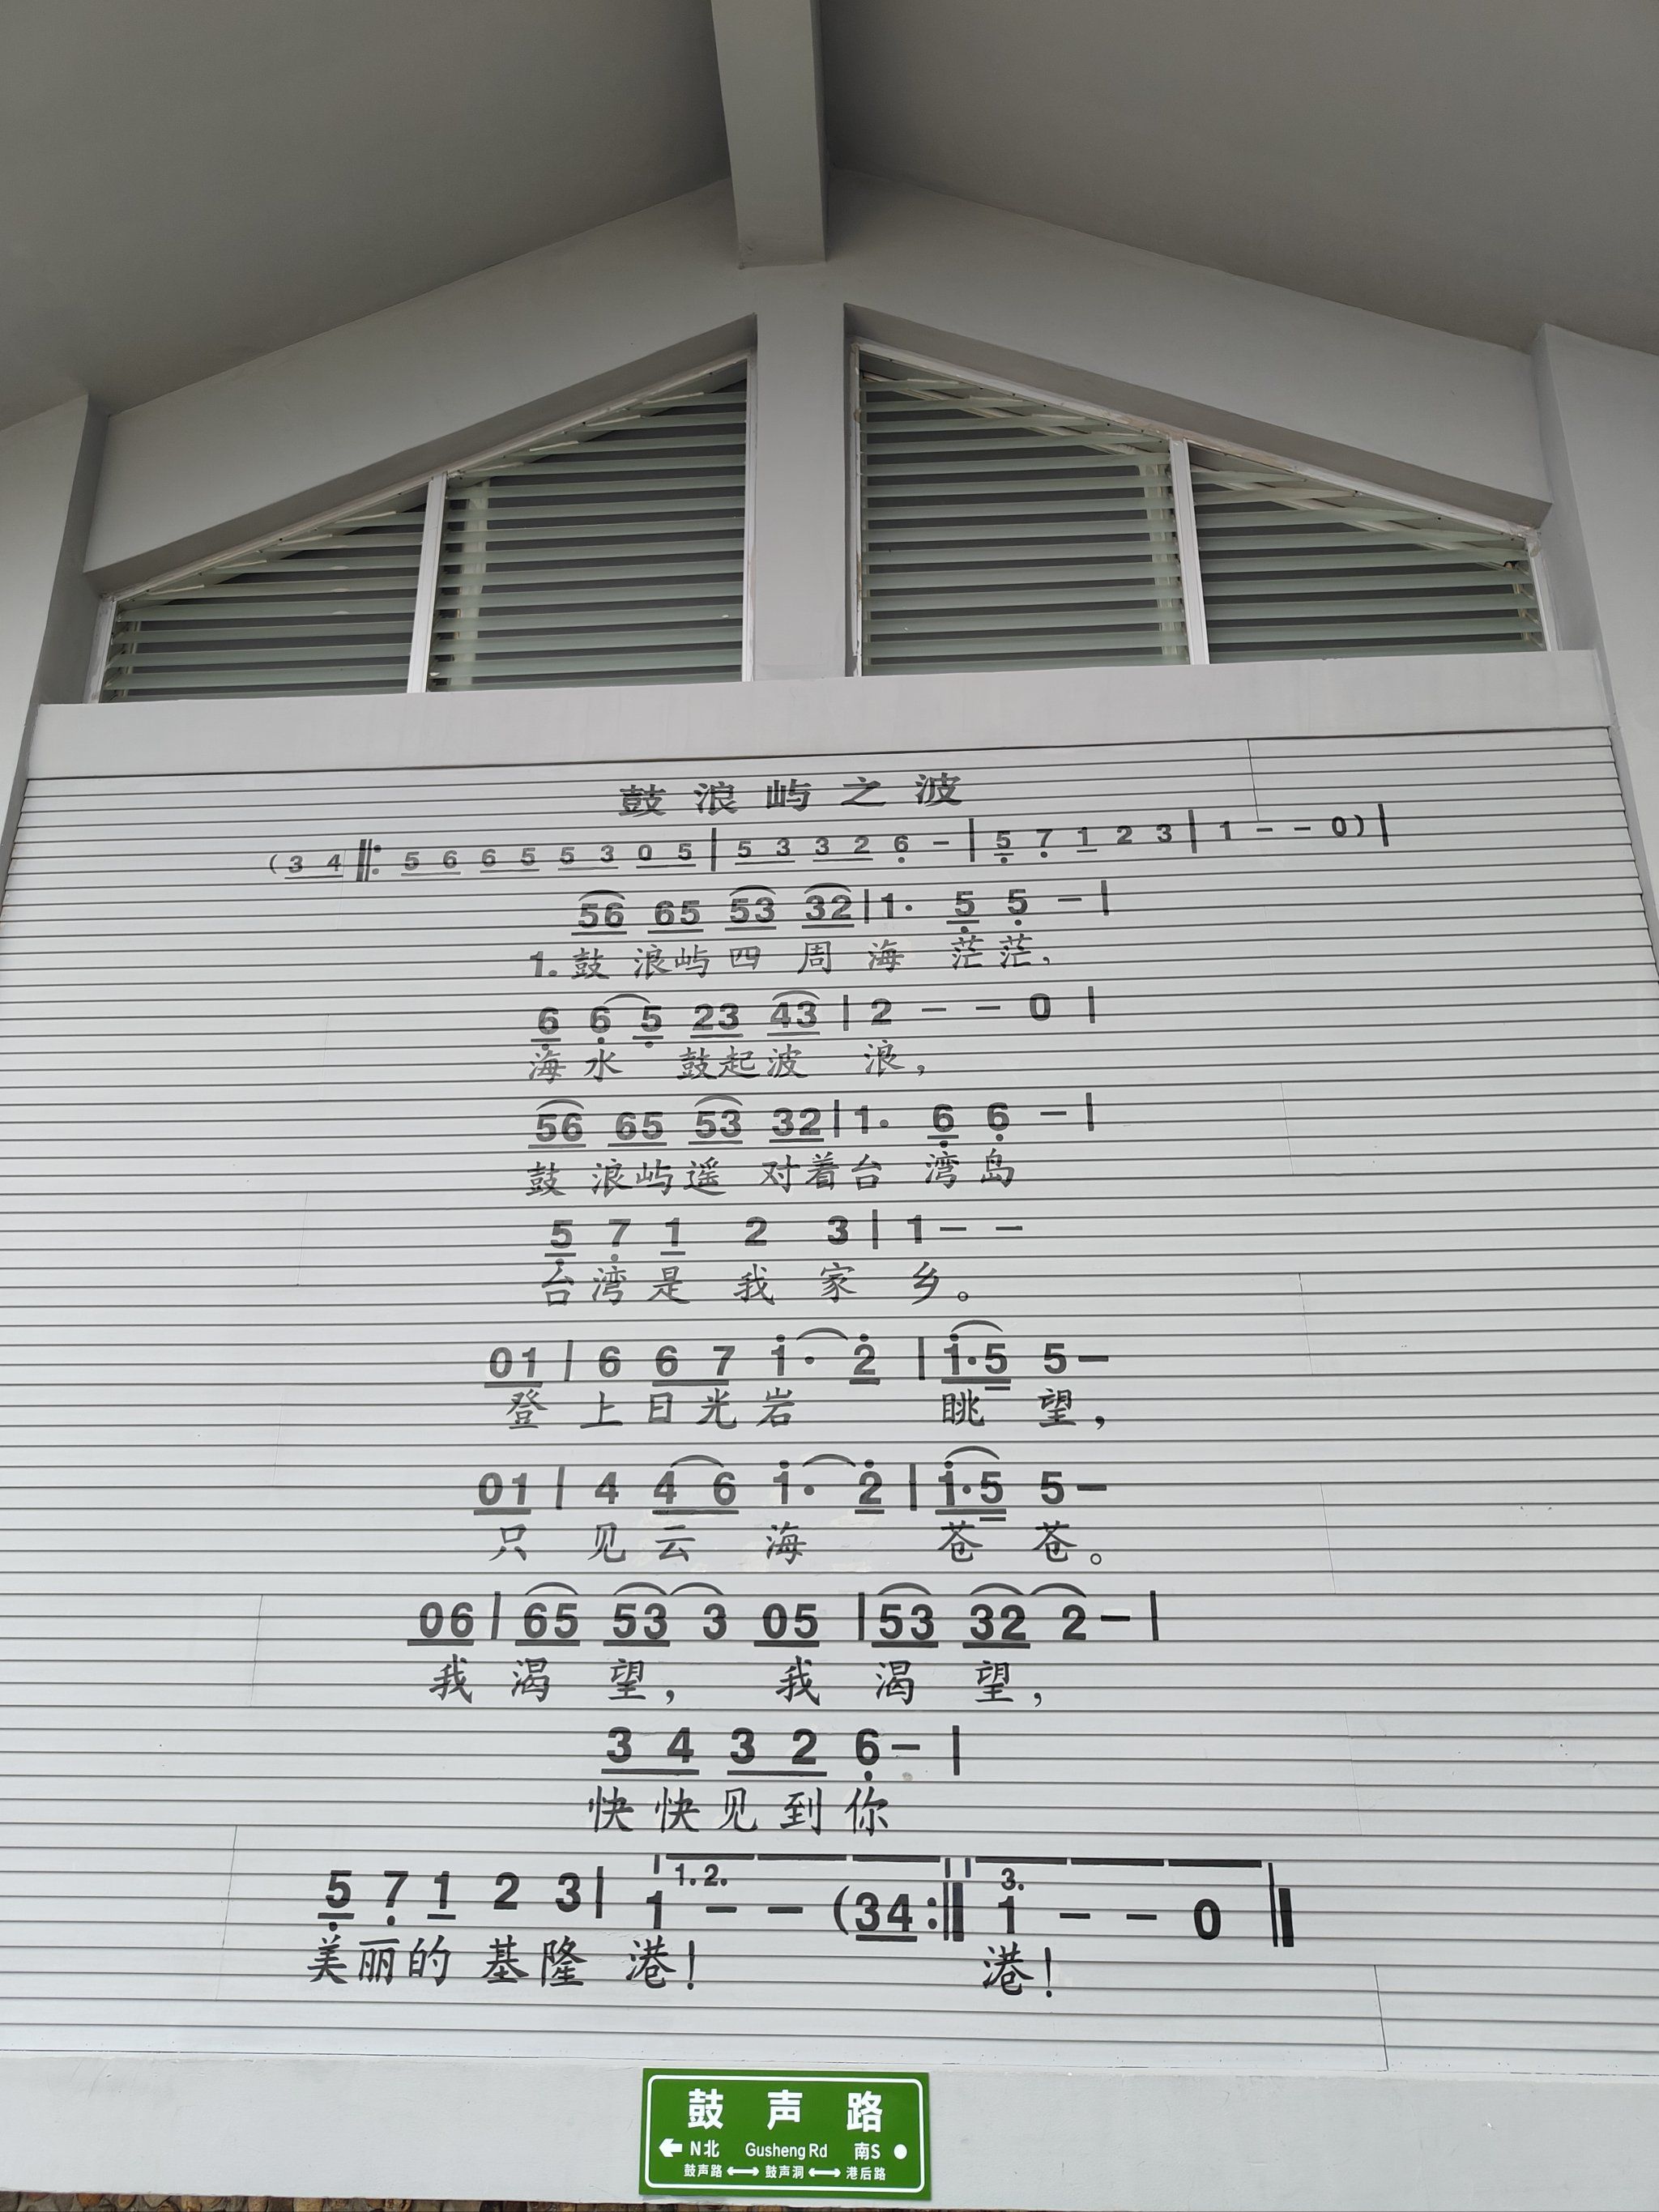 鼓浪屿之波
(3 4 ‖: 5 6 6 5 5 3 0 5 | 5 3 3 2 6 – | 5 7 1 2 3 | 1 – – 0) |
56 65 53 32 | 1· 5 5 – |
1. 鼓 浪屿 四 周 海 茫茫,
6 6 5 23 43 | 2 – – 0 |
海 水 鼓起波 浪,
56 65 53 32 | 1· 6 6 – |
鼓 浪屿遥 对着台 湾岛
5 7 1 2 3 | 1 – –
台湾是 我 家 乡。
01 | 6 6 7 1· 2 | 1·5 5 –
登 上日光岩 眺 望,
01 | 4 4 6 1· 2 | 1·5 5 –
只 见云 海 苍 苍。
06 | 65 53 3 05 | 53 32 2 – |
我 渴 望, 我 渴 望,
3 4 3 2 6 – |
快快见到你
5 7 1 2 3 | 1.2. 1 – – (34 :‖ 3. 1 – – 0 ‖
美丽的 基隆 港! 港!
鼓声路
← N北 Gusheng Rd 南S ●
鼓声路 ↔ 鼓声洞 ↔ 港后路